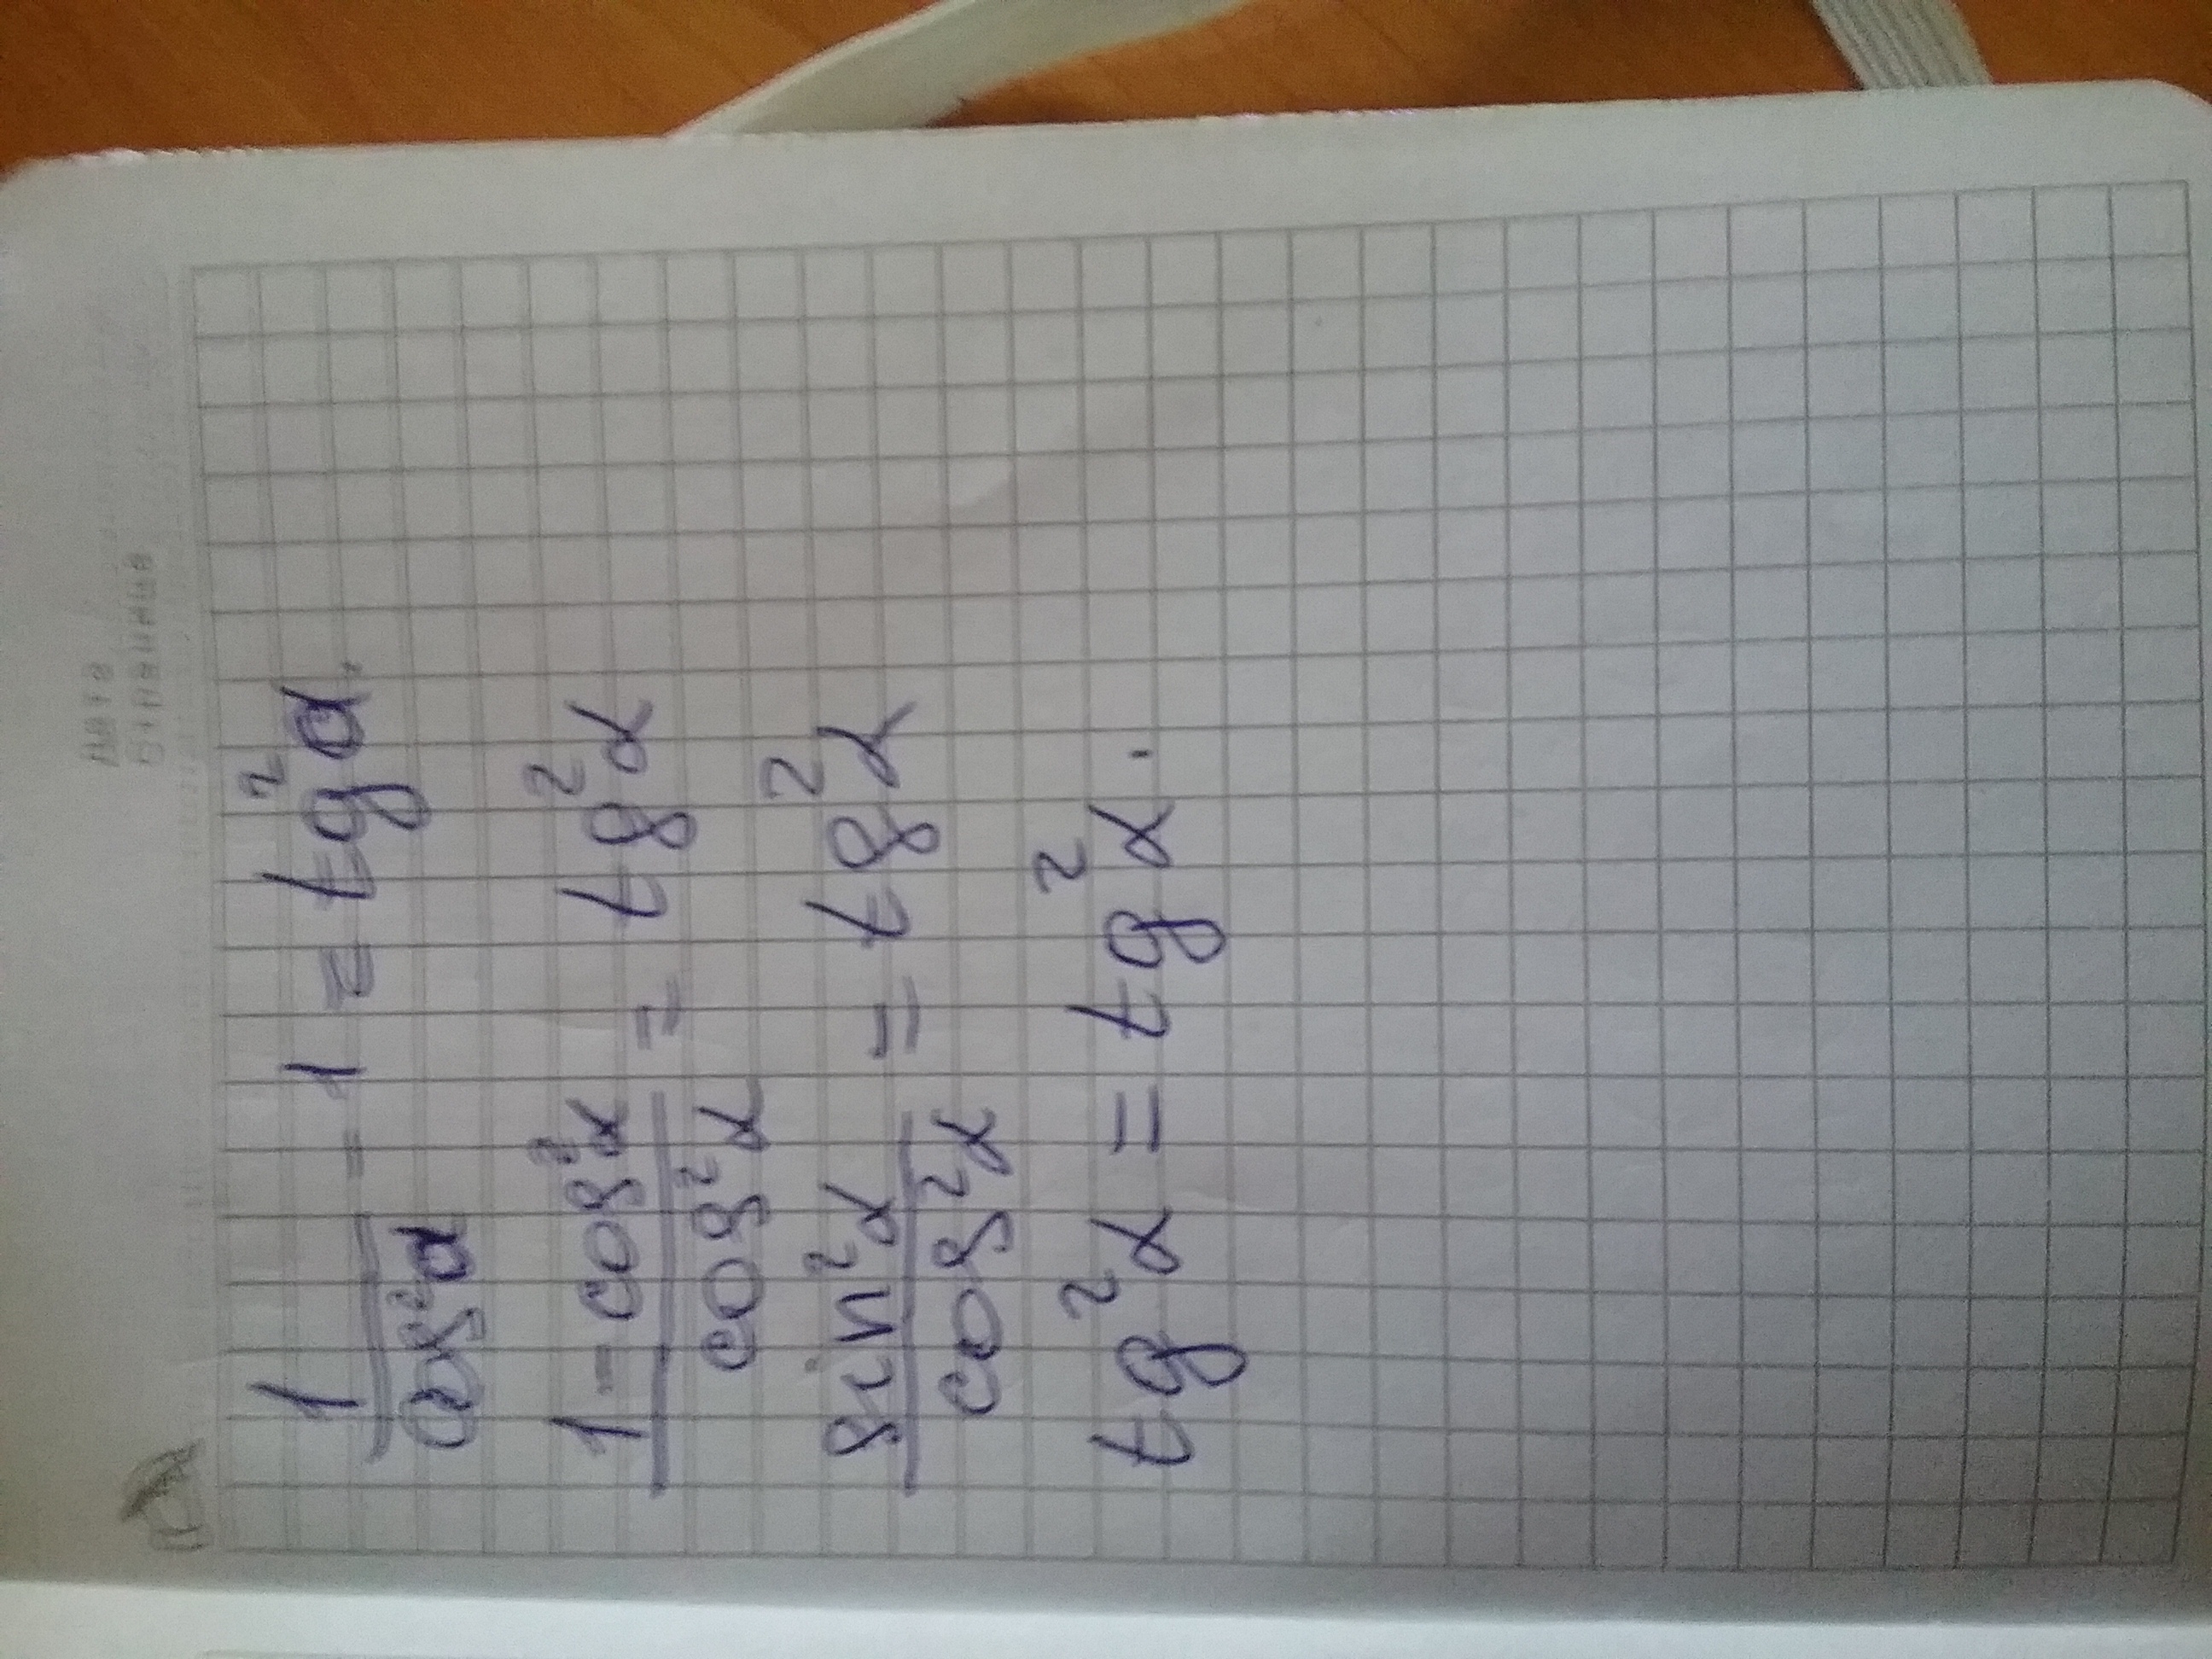 1/cos²α - 1 = tg²α
1 - cos²α / cos²α = tg²α
sin²α / cos²α = tg²α
tg²α = tg²α.